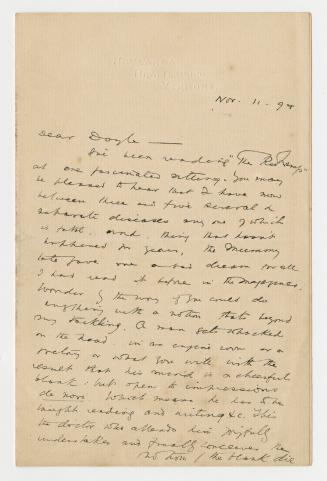 Nov. 11. 94
Dear Doyle —
I've been reading "The Red Lamp"
at one fascinated sitting. You may
be pleased to hear that I have now
between three and five several &
separate diseases any one of which
is fatal. And, thing that hasn't
happened for years, the Mummy
tale gave me a bad dream for all
I had read it before in the magazines.
Wonder by the way if you could do
anything with a notion that's beyond
my tackling. A man gets whacked
on the head in an engine room or a
or what you will with the
result that his mind is a cheerful
blank but open to impressions
de novo. Which means he has to be
taught reading and writing &c. This
the doctor who attends him joyfully
undertakes and finally conceives the
notion / the blank die